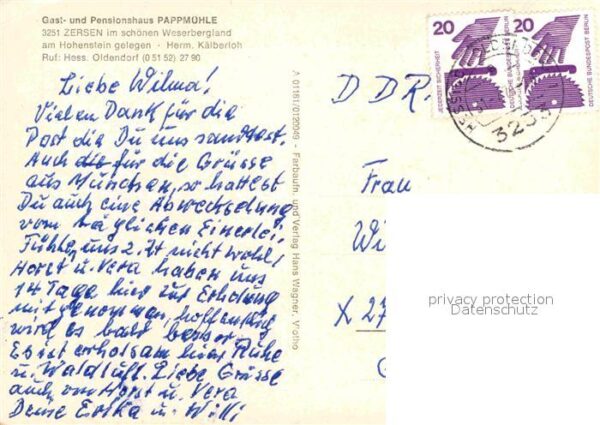 Gast- und Pensionshaus PAPPMÜHLE
3251 ZERSEN im schönen Weserbergland
am Hohenstein gelegen · Herm. Kälberloh
Ruf: Hess. Oldendorf (0 51 52) 27 90
Liebe Wilma!
Vielen Dank für die
Post die Du uns sandtest.
Auch die für die Grüsse
aus München, so hattest
Du auch eine Abwechselung
vom täglichen Einerlei,
Fühlen uns z. Zt nicht wohl,
Horst u. Vera haben uns
14 Tage hier zur Erholung
mitgenommen, hoffentlich
wird es bald besser.
Es ist erholsam hier Ruhe
u. Waldluft. Liebe Grüsse
auch von Horst u. Vera
Deine Erika u. Willi
A 01161/0120049 - Farbaufn. und Verlag Hans Wagner, Vlotho
DDR.
Frau
Wi
X 27
20
JEDERZEIT SICHERHEIT
DEUTSCHE BUNDESPOST BERLIN
20
DEUTSCHE BUNDESPOST BERLIN
325
privacy protection
Datenschutz